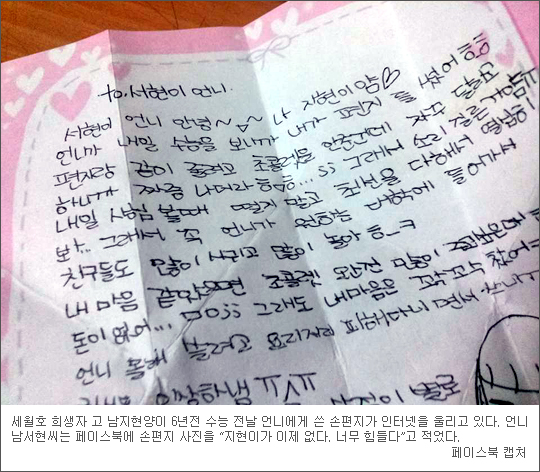 to. 서현이 언니.
서현이 언니 안녕~ 나 지현이얌♡
언니가 내일 수능을 보니까 내가 편지를 썼어 ㅎㅎ
편지랑 같이 줄려고 초콜렛을 만든건데 자꾸 닳으
하니까 짜증 나더라 ㅎㅎ... 그래서
내일 시험 볼때 떨지 말고 최선을 다해서
봐.. 그래서 꼭 언니가 원하는 대학에 들어가서
친구들도 많이 사귀고 많이 놀아 ㅎ_ㅋ
내 마음 같았으면 초콜렛 많이
돈이 없어... 그래도 내마음은 꼭꼭
언니 몰래 줄려고 요리저리 피해다니면서
ㅠㅅㅠ
세월호 희생자 고 남지현양이 6년전 수능 전날 언니에게 쓴 손편지가 인터넷을 울리고 있다. 언니
남서현씨는 페이스북에 손편지 사진을 “지현이가 이제 없다. 너무 힘들다”고 적었다.
페이스북 캡처